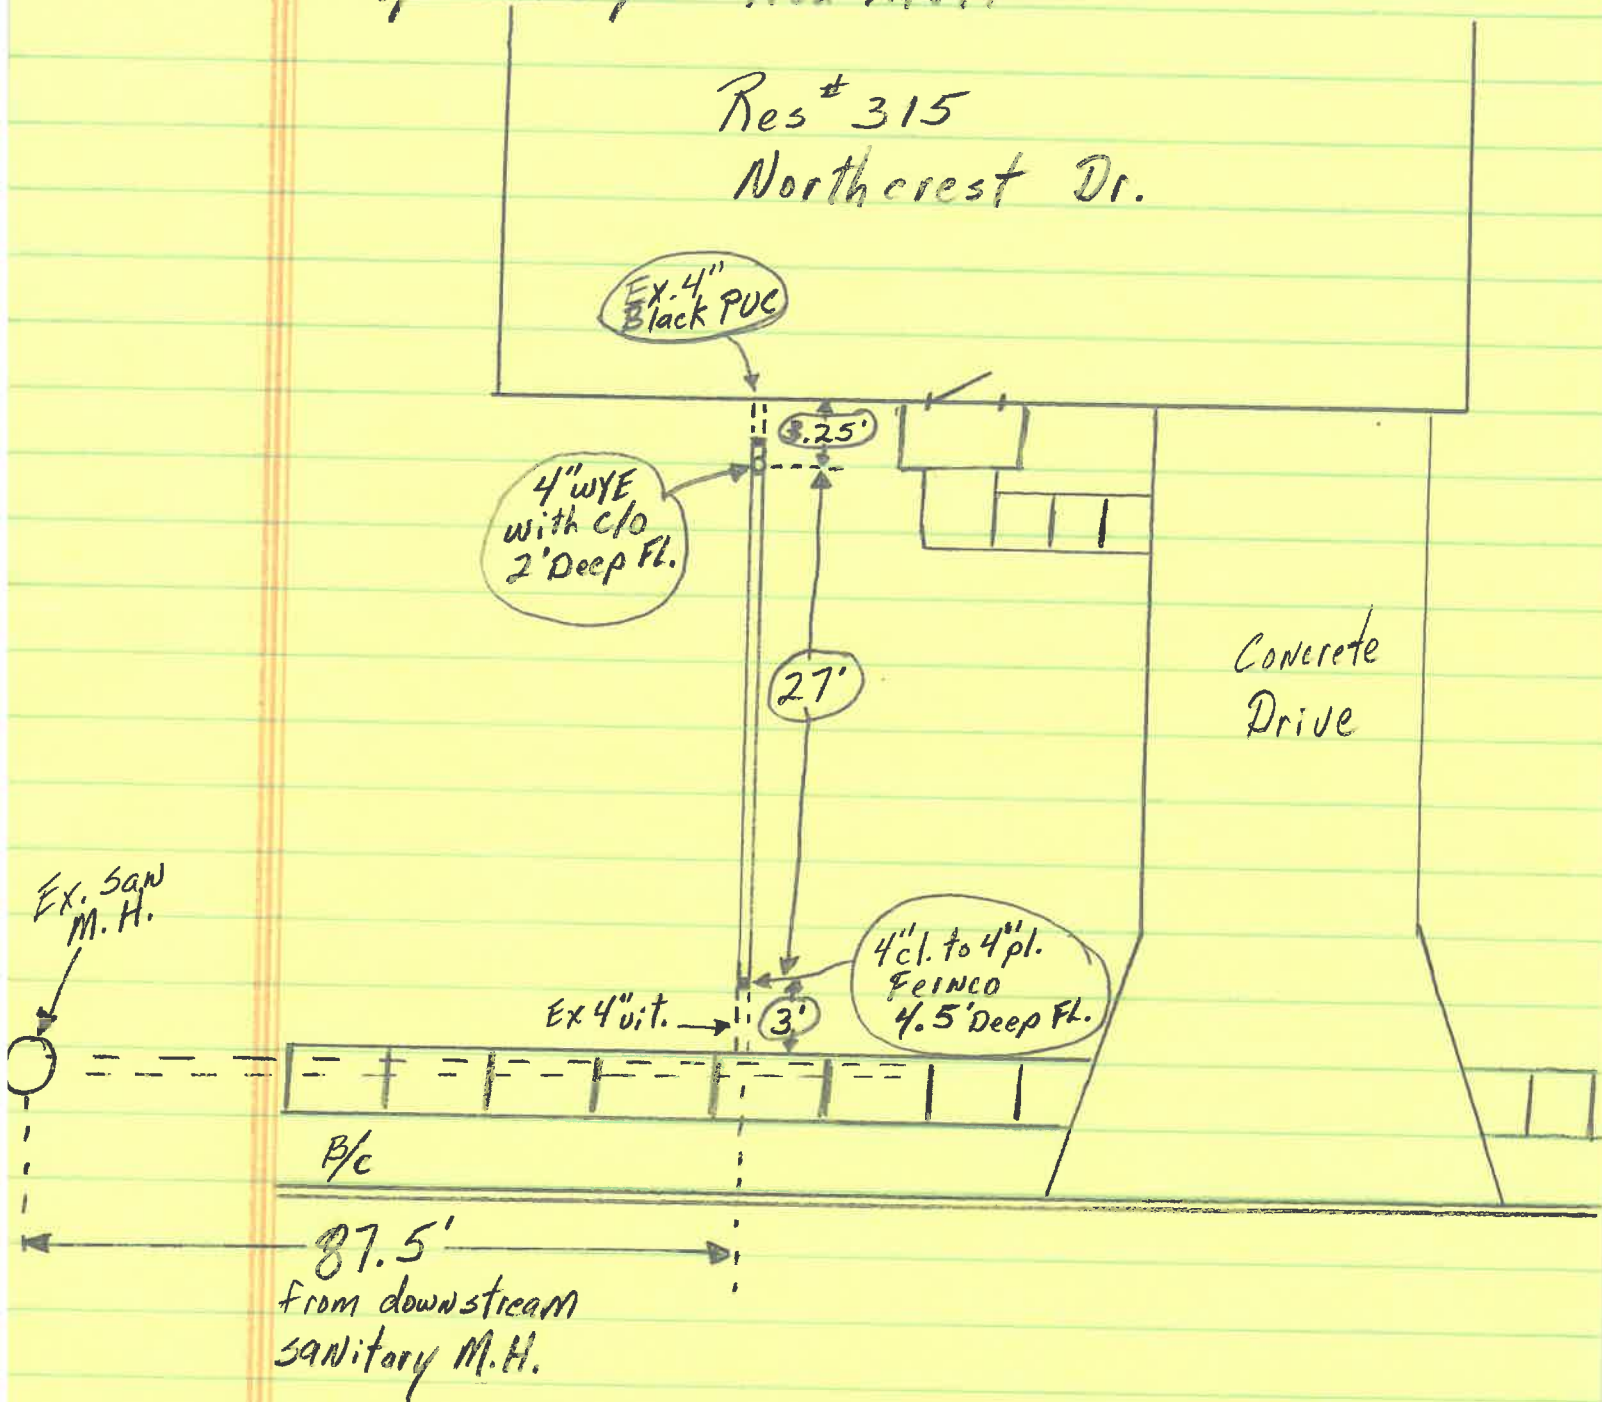 Res # 315
Northcrest Dr.
Ex. 4"
Black PVC
.25'
4" WYE
with c/o
2' Deep FL.
27'
Concrete
Drive
Ex. San
M.H.
4" cl. to 4" pl.
Fernco
4.5' Deep FL.
Ex 4" vit.
3'
B/c
87.5'
from downstream
sanitary M.H.